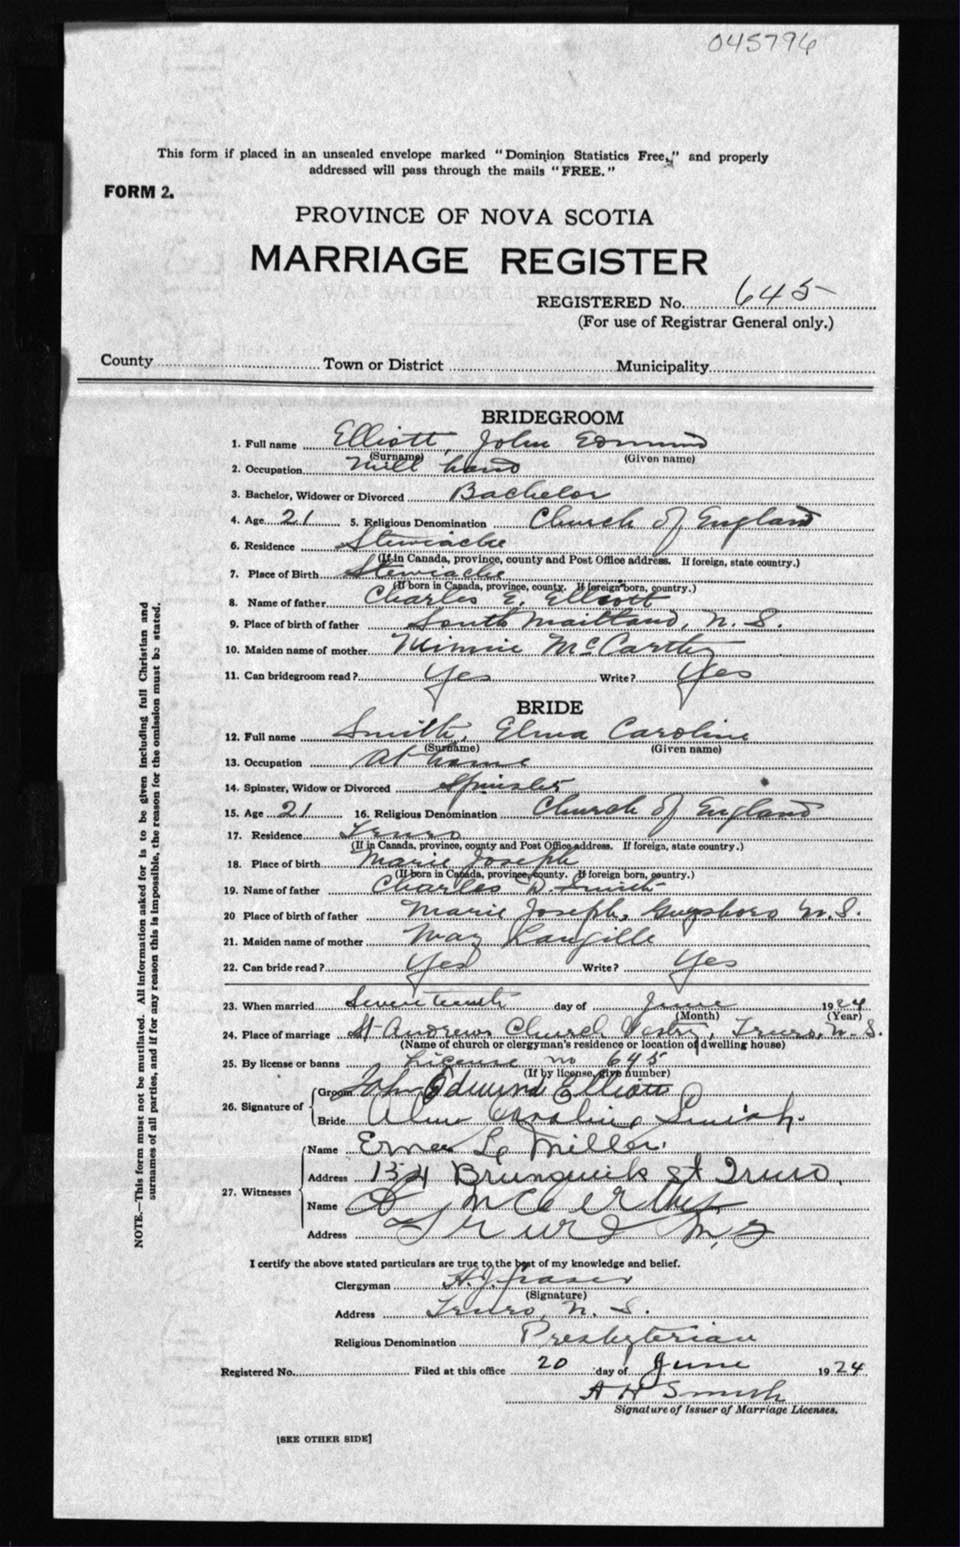 045796
This form if placed in an unsealed envelope marked "Dominion Statistics Free," and properly
addressed will pass through the mails "FREE."
FORM 2.
PROVINCE OF NOVA SCOTIA
MARRIAGE REGISTER
REGISTERED No. 645
(For use of Registrar General only.)
County Town or District Municipality
BRIDEGROOM
1. Full name Elliott, John Edmund
(Surname) (Given name)
2. Occupation Mill hand
3. Bachelor, Widower or Divorced Bachelor
4. Age 21 5. Religious Denomination Church of England
6. Residence Stewiacke
(If in Canada, province, county and Post Office address. If foreign, state country.)
7. Place of Birth Stewiacke
(If born in Canada, province, county. If foreign born, country.)
8. Name of father Charles E. Elliott
9. Place of birth of father South Maitland, N. S.
10. Maiden name of mother Minnie McCarthy
11. Can bridegroom read? Yes Write? Yes
BRIDE
12. Full name Smith, Elma Caroline
(Surname) (Given name)
13. Occupation At home
14. Spinster, Widow or Divorced Spinster
15. Age 21 16. Religious Denomination Church of England
17. Residence Truro
(If in Canada, province, county and Post Office address. If foreign, state country.)
18. Place of birth Marie Joseph
(If born in Canada, province, county. If foreign born, country.)
19. Name of father Charles D. Smith
20 Place of birth of father Marie Joseph, Guysboro N. S.
21. Maiden name of mother May Langille
22. Can bride read? Yes Write? Yes
23. When married Seventeenth day of June 1924
(Month) (Year)
24. Place of marriage St Andrews Church Vestry, Truro, N. S.
(Name of church or clergyman's residence or location of dwelling house)
25. By license or banns License no 645
(If by license, give number)
26. Signature of Groom John Edmund Elliott
Bride Caroline Smith.
27. Witnesses Name Miller
Address Brunswick St Truro
Name
Address Truro N. S
I certify the above stated particulars are true to the best of my knowledge and belief.
Clergyman A. J. Fraser
(Signature)
Address Truro, N. S.
Religious Denomination Presbyterian
Registered No. Filed at this office 20 day of June 1924
A H Smith
Signature of Issuer of Marriage Licenses.
[SEE OTHER SIDE]
NOTE.—This form must not be mutilated. All information asked for is to be given including full Christian and
surnames of all parties, and if for any reason this is impossible, the reason for the omission must be stated.